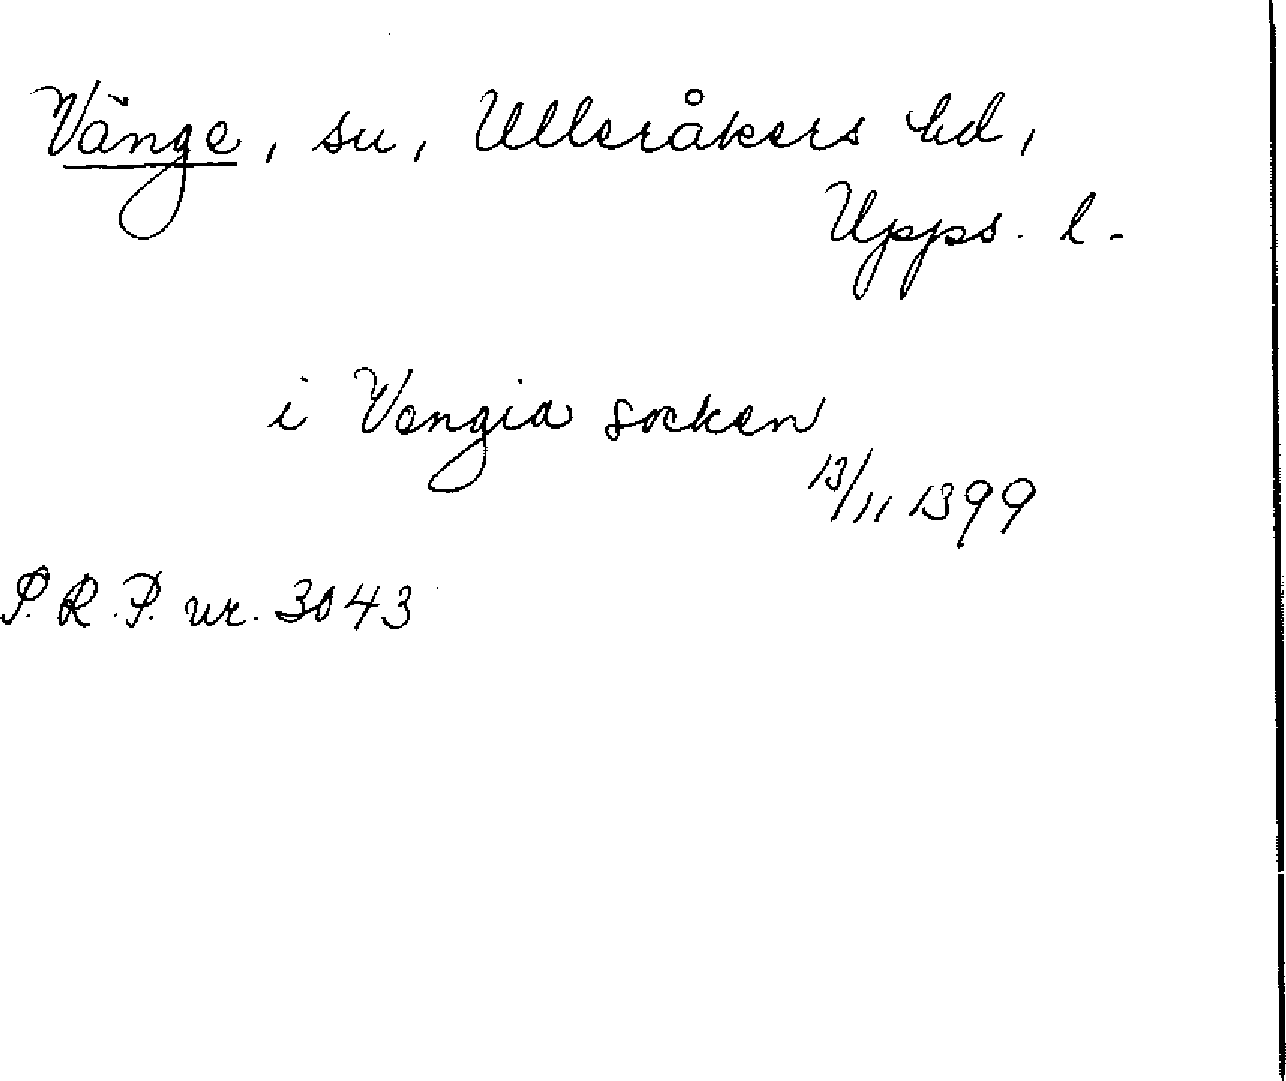 Vänge, sn, Ulleråkers hd,
Upps. l.
i Vengia socken
13/11 1399
P.R.P. nr. 3043